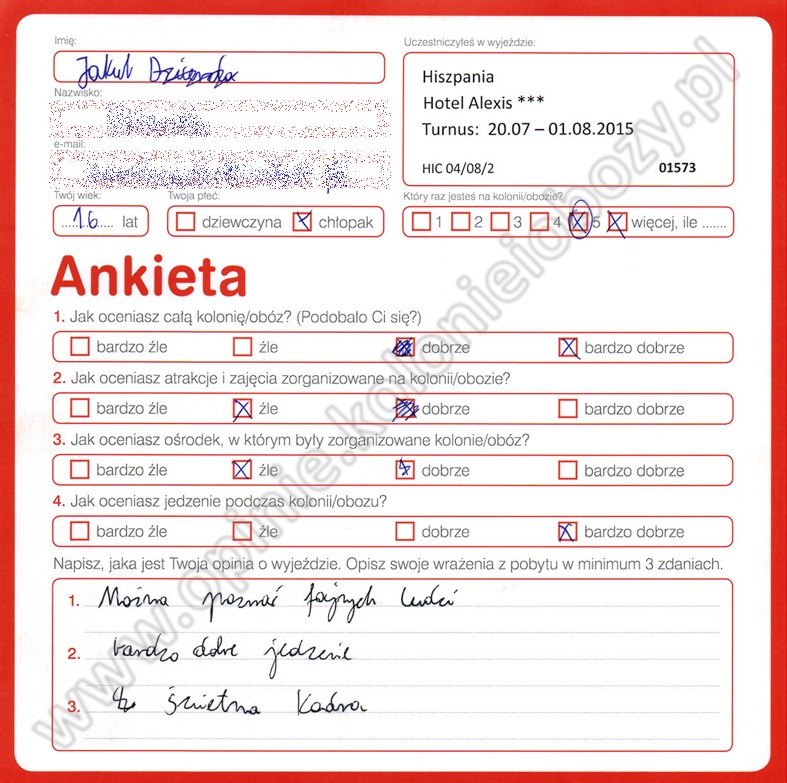 Imię:
Jakub
Uczestniczyłeś w wyjeździe:
Hiszpania
Hotel Alexis ***
Turnus: 20.07 – 01.08.2015
HIC 04/08/2 01573
Nazwisko:
e-mail:
Twój wiek:
16 lat
Twoja płeć:
dziewczyna chłopak
Który raz jesteś na kolonii/obozie?
1 2 3 4 5 więcej, ile .......
Ankieta
1. Jak oceniasz całą kolonię/obóz? (Podobało Ci się?)
bardzo źle źle dobrze bardzo dobrze
2. Jak oceniasz atrakcje i zajęcia zorganizowane na kolonii/obozie?
bardzo źle źle dobrze bardzo dobrze
3. Jak oceniasz ośrodek, w którym były zorganizowane kolonie/obóz?
bardzo źle źle dobrze bardzo dobrze
4. Jak oceniasz jedzenie podczas kolonii/obozu?
bardzo źle źle dobrze bardzo dobrze
Napisz, jaka jest Twoja opinia o wyjeździe. Opisz swoje wrażenia z pobytu w minimum 3 zdaniach.
1. Można poznać fajnych ludzi
2. bardzo dobre jedzenie
3. świetna Kadra
www.opinie.kolonieiobozy.pl